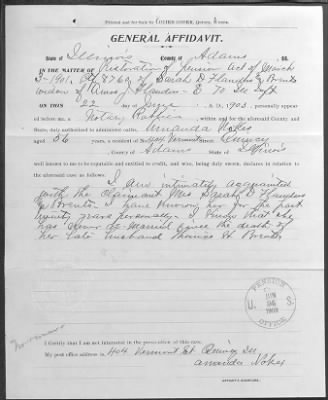 Printed and for Sale by Quincy, Illinois.
GENERAL AFFIDAVIT.
State of Illinois County of Adams
IN THE MATTER OF Restoration of Pension Act of March
3-1901. 8760, of Sarah D Flanders
widow of Amos J Flanders E 70 Ill Inft
ON THIS 22 day of June A. D., 1903, personally appeared
before me, a Notary Public within and for the aforesaid County and
State, duly authorized to administer oaths, Amanda Nokes
aged 56 years, a resident of 404 Vermont Street Quincy
County of Adams State of Illinois
well known to me to be reputable and entitled to credit, and who, being duly sworn, declares in relation
to the aforesaid case as follows:
I am intimately acquainted
with the Claimant Mrs Sarah D Flanders
I have known her for the past
twenty years personally - I know that she
has never re Married since the death of
her late husband Thomas H
PENSION
U. S.
JUN 24 1903
OFFICE
I certify that I am not interested in the prosecution of this case.
My post office address is 404 Vermont St Quincy Ill
Amanda Nokes
AFFIANT'S SIGNATURE.